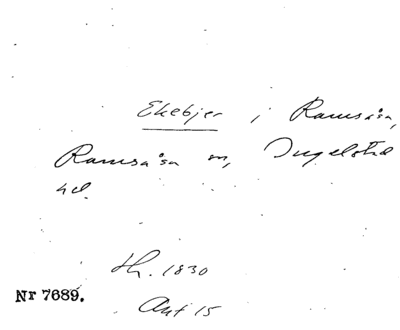 Ekebjer i Ramsåsa,
Ramsåsa sn, Ingelstad
hd.
Hr. 1830
Nr 7689.
Akt 15